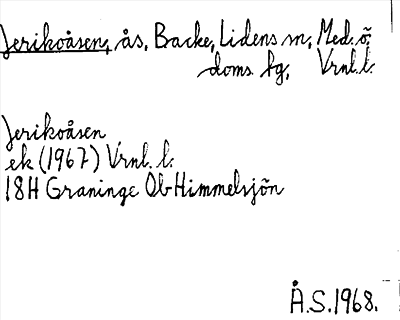 Jerikoåsen, ås, Backe, Lidens sn, Med.ö.
doms kg, Vrnl.l.
Jerikoåsen
ek (1967) Vrnl. l.
18H Graninge Ob Himmelsjön
Å.S.1968.